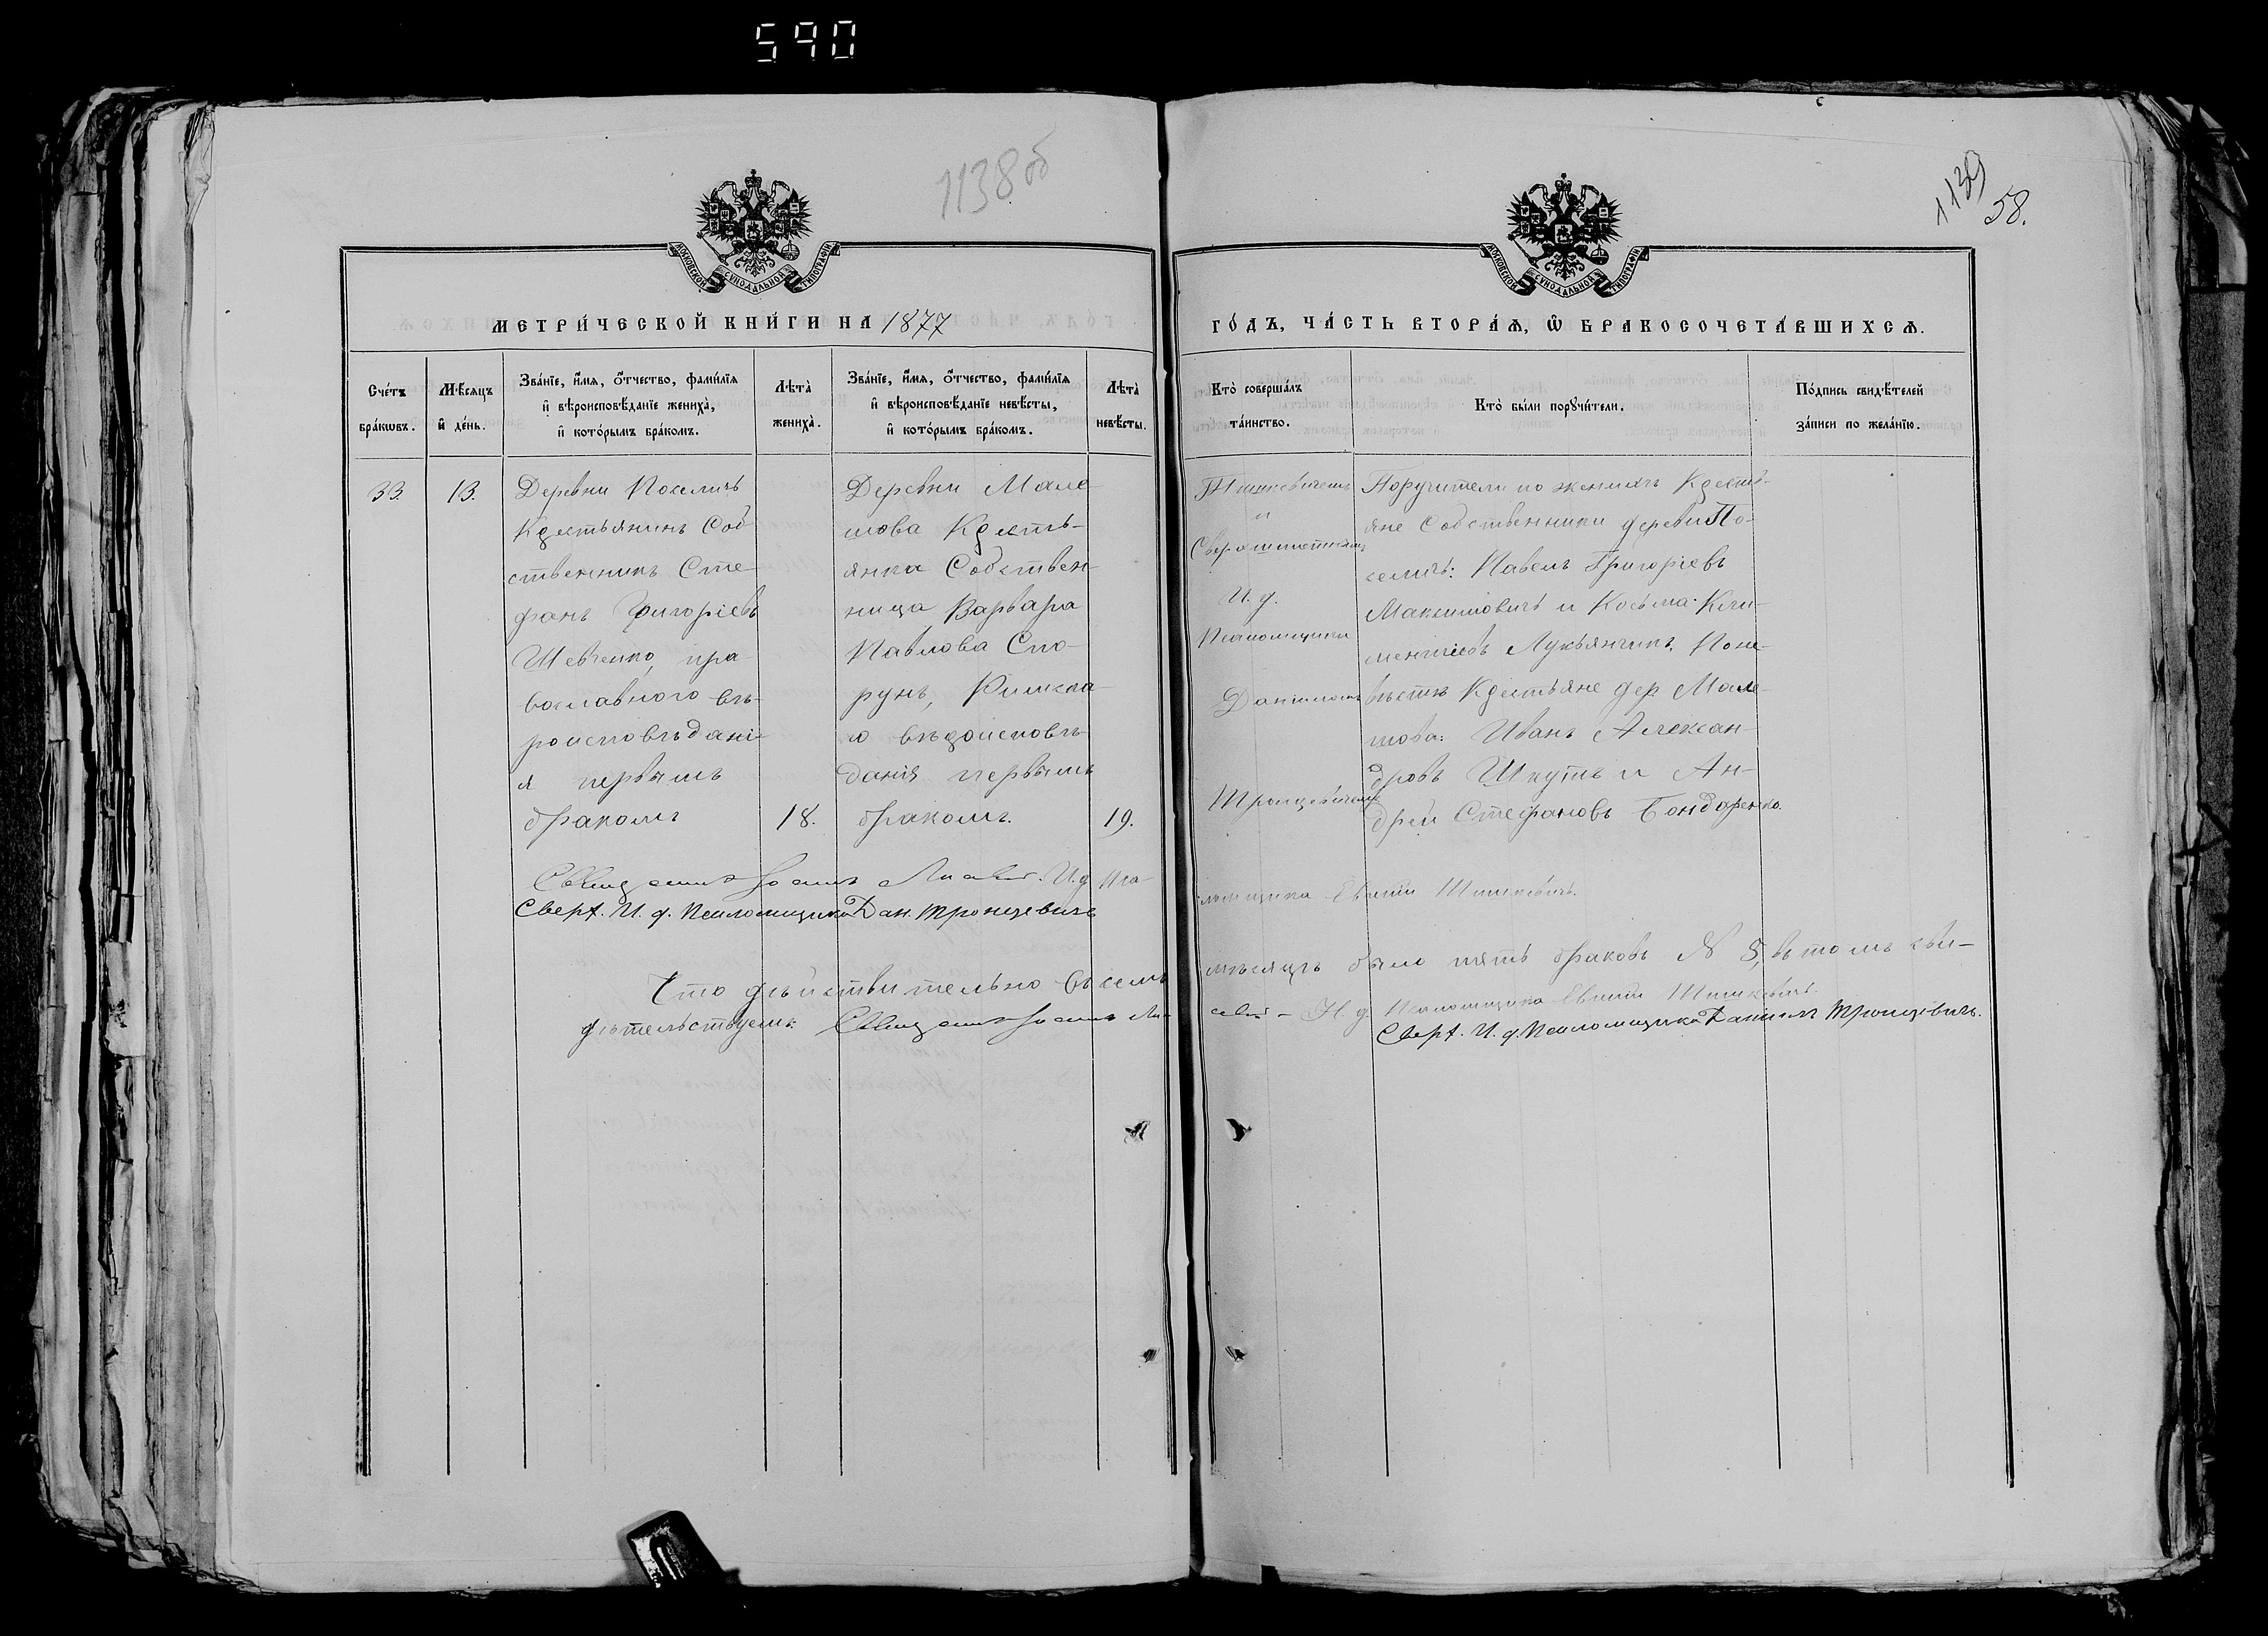 590
1138 об
1139
58.
МОСКОВСКОЙ СѴНОДАЛЬНОЙ ТИПОГРАФІИ
МОСКОВСКОЙ СѴНОДАЛЬНОЙ ТИПОГРАФІИ
МЕТРИ́ЧЕСКОЙ КНИ́ГИ НА 1877
ГО́ДЪ, ЧА́СТЬ ВТОРА́Ѧ, Ѡ҆ БРАКОСОЧЕТА́ВШИХСѦ.
Сче́тъ бра́кѡвъ.
Мѣ́сяцъ и҆ де́нь.
Зва́нїе, и҆́мѧ, ѻ҆́тчество, фами́лїѧ
и҆ вѣроисповѣ́данїе жениха̀,
и҆ кото́рымъ бра́комъ.
Лѣта̀ жениха̀.
Зва́нїе, и҆́мѧ, ѻ҆́тчество, фами́лїѧ
и҆ вѣроисповѣ́данїе невѣ́сты,
и҆ кото́рымъ бра́комъ.
Лѣта̀ невѣ́сты.
Кто̀ соверша́лъ
та́инство.
Кто̀ бы́ли порꙋчи́тели.
По́дпись свидѣ́телей
за́писи по жела́нїю.
33.
13.
Деревни Поселичь
Крестьянинъ Соб
ственникъ Сте-
фанъ Григоріевъ
Шевченко, пра-
вославного вѣ-
роисповѣдані-
я первымъ
бракомъ
18.
Деревни Мале-
шова Кресть-
янка Собствен-
ница Варвара
Павлова Спо-
рунъ, Римска-
о вѣроисповѣ-
данія первымъ
бракомъ.
19.
Тишкевичемъ
и
Сверхштатнымъ
И. д.
Псаломщика
Даніиломъ
Тронцевичемъ
Поручители по женихѣ Кресть-
яне Собственники деревни По-
селичь: Павелъ Григоріевъ
Максимовичъ и Косьма Кли-
ментіевъ Лукьянчикъ. По не-
вѣстѣ Крестьяне дер. Мале-
шова: Иванъ Алексан-
дровъ Шкутъ и Ан-
дрей Стефановъ Бондаренко.
Священникъ Іоаннъ И. д. Пса-
ломщика Евфимій Тишкевичъ.
Сверх. И. д. Псаломщика Дан. Тронцевичъ
Что дѣйствительно въ семъ
мѣсяцѣ было пять браковъ № 5, въ томъ сви-
дѣтельствуемъ: Священникъ Іоаннъ
И. д. Псаломщика Евфимій Тишкевичъ.
Сверх. И. д. Псаломщика Даніилъ Тронцевичъ.